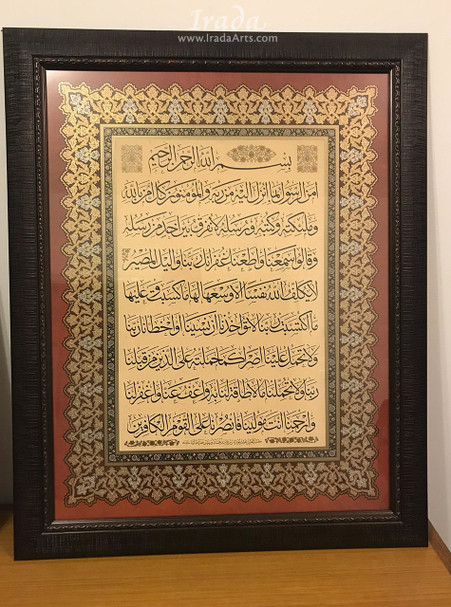 Irada
www.IradaArts.com
بسم الله الرحمن الرحيم
امن الرسول بما انزل اليه من ربه والمؤمنون كل امن بالله
وملئكته وكتبه ورسله لا نفرق بين احد من رسله
وقالوا سمعنا واطعنا غفرانك ربنا واليك المصير
لا يكلف الله نفسا الا وسعها لها ما كسبت وعليها
ما اكتسبت ربنا لا تؤاخذنا ان نسينا او اخطانا ربنا
ولا تحمل علينا اصرا كما حملته على الذين من قبلنا
ربنا ولا تحملنا ما لا طاقة لنا به واعف عنا واغفر لنا
وارحمنا انت مولينا فانصرنا على القوم الكافرين